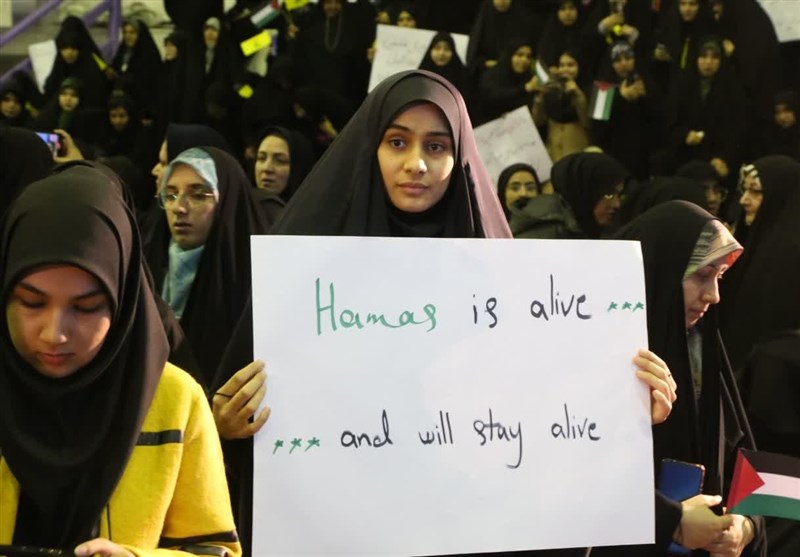 Hamas is alive ***
*** and will stay alive